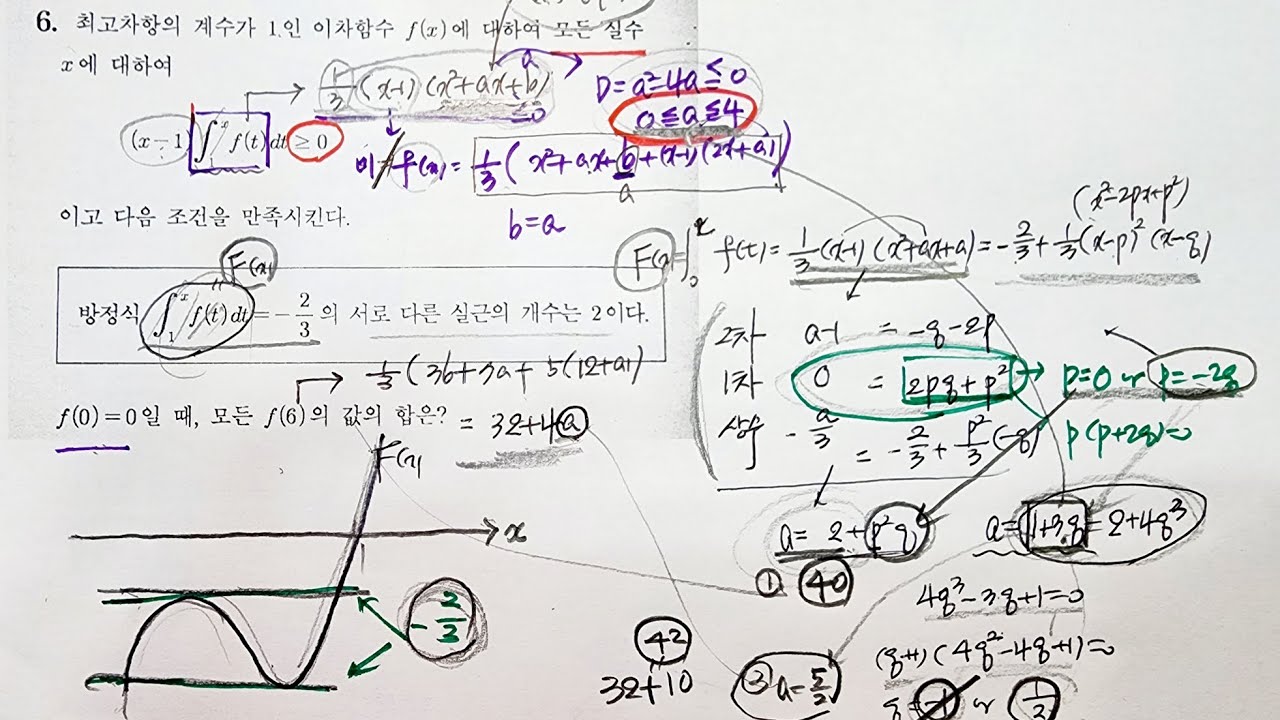 6. 최고차항의 계수가 1인 이차함수 f(x)에 대하여 모든 실수
x에 대하여
a
1/3 (x-1) (x²+ax+b)
≥0
D=a²-4a≤0
0≤a≤4
(x-1)∫₁ˣ f(t)dt ≥0
미 f(x)= 1/3 ( x²+ax+b+(x-1)(2x+a) )
a
b=a
이고 다음 조건을 만족시킨다.
(x²-2px+p²)
F(x)
F(x)
f(t)= 1/3 (x-1) (x²+ax+a) = -2/3 + 1/3 (x-p)² (x-q)
방정식 ∫₁ˣ f(t)dt = -2/3 의 서로 다른 실근의 개수는 2이다.
2차 a-1 = -q-2p
1차 0 = 2pq+p² → p=0 or p=-2q
p(p+2q)=0
상수 -a/3 = -2/3 + p²/3 (-q)
1/3 (36+7a+5(12+a))
f(0)=0일 때, 모든 f(6)의 값의 합은? = 32+4a
F(x)
x
-2/3
a= 2+p²q
a= 1+3q = 2+4q³
① 40
4q³-3q+1=0
(q+1)(4q²-4q+1)=0
q=-1 or 1/2
42
32+10
③ a=5/2